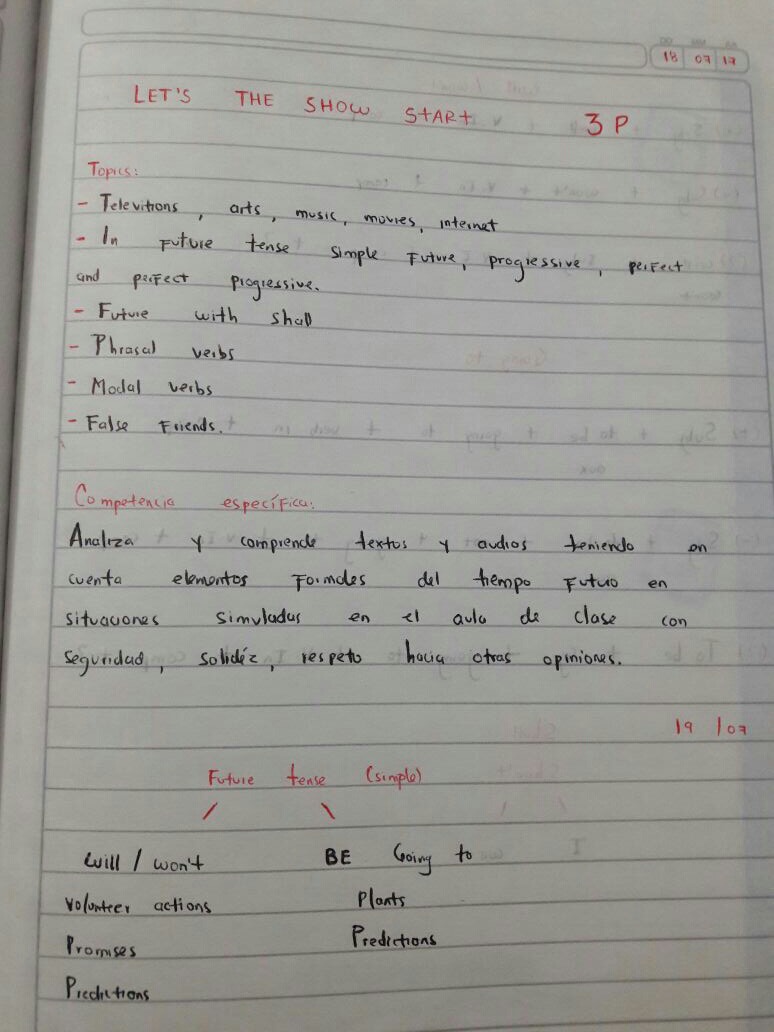 18 07 17
LET'S THE SHOW START 3 P
Topics:
- Televitions, arts, music, movies, internet
- In future tense simple future, progressive, perfect
and perfect progressive.
- Future with shall
- Phrasal verbs
- Modal verbs
- False Friends.
Competencia específica:
Analiza y comprende textos y audios teniendo en
cuenta elementos Formales del tiempo Futuro en
situaciones simuladas en el aula de clase con
seguridad, solidéz, respeto hacia otras opiniones.
19 /07
Future tense (simple)
will / won't BE Going to
Volunteer actions Plants
Promises Predictions
Predictions